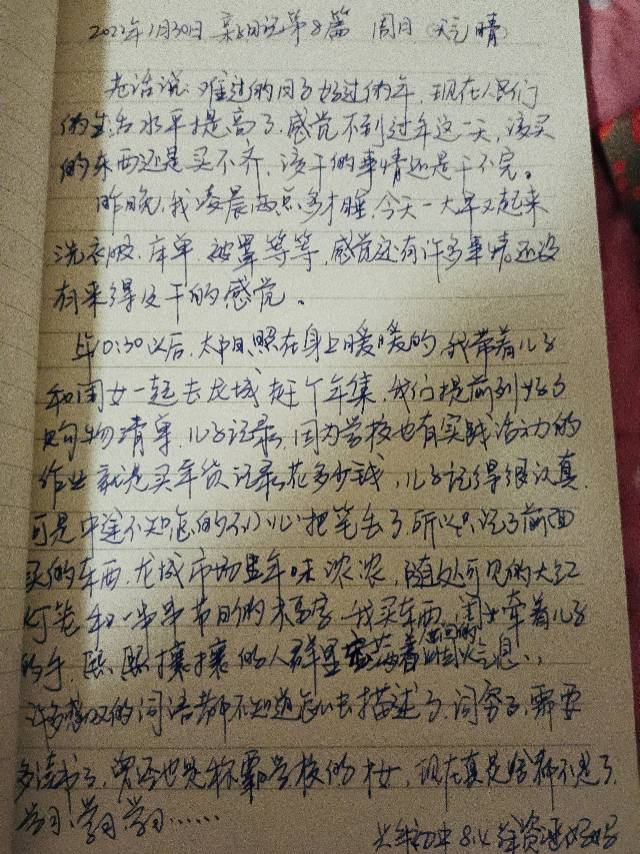 2022年1月30日 亲子日记第8篇 周日 天气晴
老话说：难过的日子好过的年，现在人们
的生活水平提高了，感觉不到过年这一天，该买
的东西还是买不齐，该干的事情还是干不完。
昨晚，我凌晨两点多才睡，今天一大早又起来
洗衣服、床单、被罩等等，感觉还有许多事情还没
有来得及干的感觉。
上午10:30以后，太阳照在身上暖暖的，我带着儿子
和闺女一起去龙城赶个年集，我们提前列好了
购物清单，儿子记录，因为学校也有实践活动的
作业就是买年货记录花多少钱，儿子记得很认真，
可是中途不知怎的不小心把笔丢了，所以只记了前面
买的东西，龙城市场里年味浓浓，随处可见的大红
灯笼和一串串节日的 我买东西，闺女牵着儿子
的手，熙熙攘攘的人群里 着 气息，
许多 的词语都不知道怎么去描述了，词穷了，需要
多读书了，曾经也是称霸学校的才女，现在真是啥都不是了，
学习，学习，学习……
六年